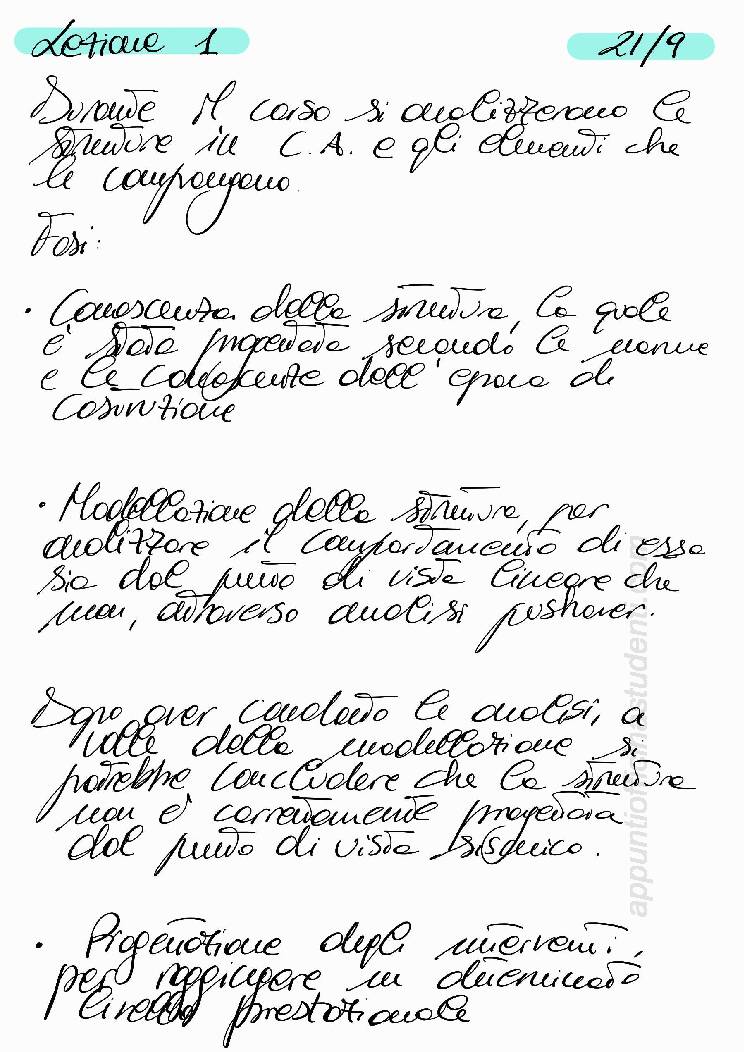 Lezione 1
21/9
Durante il corso si analizzeranno le
strutture in C.A. e gli elementi che
le compongono.
Fasi:
· Conoscenza della struttura, la quale
è stata progettata secondo le norme
e le conoscenze dell'epoca di
costruzione
· Modellazione della struttura, per
analizzare il comportamento di essa
sia dal punto di vista lineare che
non, attraverso analisi pushover.
Dopo aver condotto le analisi, a
valle della modellazione si
potrebbe concludere che la struttura
non è correttamente progettata
dal punto di vista sismico.
· Progettazione degli interventi,
per raggiungere un determinato
livello prestazionale